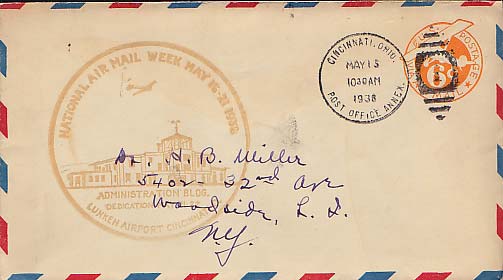 NATIONAL AIR MAIL WEEK MAY 15-21 1938
ADMINISTRATION BLDG.
DEDICATION
LUNKEN AIRPORT CINCINNATI
CINCINNATI, OHIO.
MAY 15
1030 AM
1938
POST OFFICE ANNEX.
POSTAGE
6
Dr. A. B. Miller
5402 - 32nd Ave
Woodside, L. I.
N.Y.